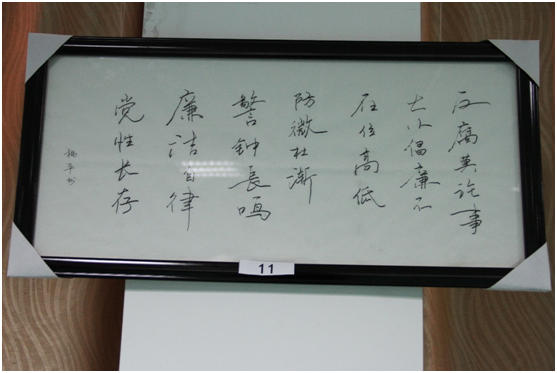 反腐莫论事
大小倡廉不
在位高低
防微杜渐
警钟長鸣
廉洁自律
党性长存
杨平书
11